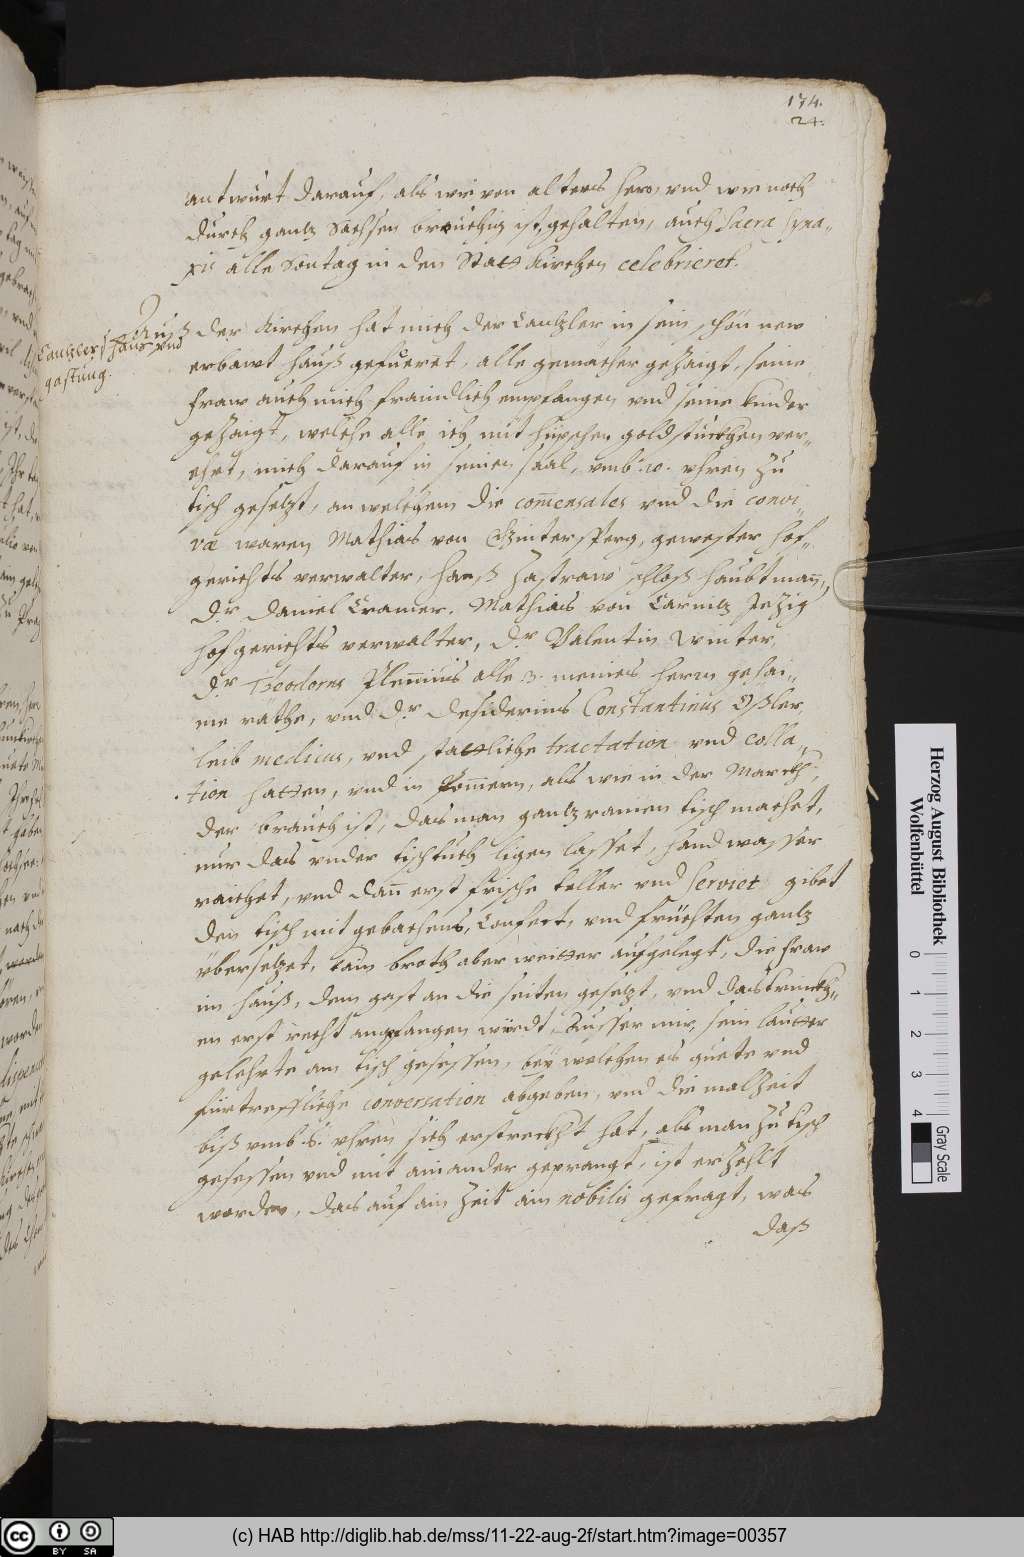 174.
24.
antwurt darauf, als wie von alters hero, vnd wie noch
durch gantz Sachsen breuchig ist, gehalten, auch Sacra Syna„
xis alle Sontag in den Statt Kirchen celebrieret.
Cantzlers haus vnd
gastung.
Auß der Kirchen hat mich der Cantzler in sein schön new
erbawt hauß gefueret, alle gemächer gezaigt, seine
fraw auch mich fraindlich empfangen vnd seine kinder
gezaigt, welche alle ich mit hüpschen goldstuckhen ver„
ehrt, mich darauf in seinen saal, vmb .10. vhren zu
tisch gesetzt, an welchem die com̄ensales vnd die convi„
væ waren Mathias von Güntersperg, gewester hof„
gerichts verwalter, hanß Zastraw schloß haubtman̄,
Dr. Daniel Cramer. Mathias von Carnitz jezig
hofgerichts verwalter, Dr. Valentin Winter,
Dr. Theodorus Plen̄ius alle .3. meines herrn gehai„
me räthe, vnd Dr. Desiderius Constantinus Oßler,
leib medicus, vnd stattliche tractation vnd colla„
tion hatten, vnd in Pom̄ern, als wie in der Marckh,
der brauch ist, das man gantz ramen tisch machet,
nur das vnder tischtuch ligen lasset, handwasser
raichet, vnd dan̄ erst frische teller vnd serviet gibet
den tisch mit gebachens, Confect, vnd früchten gantz
übersetzet, kain broth aber weitter aufgelegt, die fraw
im hauß, dem gast an die seiten gesetzt, vnd das trinckh„
en erst recht angfangen würdt, Ausser mir, sein lautter
gelehrte am tisch gesessen, bey welchen es guete vnd
fürtreffliche conversation abgeben, vnd die malzeit
biß vmb .5. vhren sich erstreckht hat, als man zu tisch
gesessen vnd mit ainander geprangt, ist erzehlt
worden, das auf ain zeit ain nobilis gefragt, was
daß
Herzog August Bibliothek
Wolfenbüttel
0 1 2 3 4
Gray Scale
cc BY SA
(c) HAB http://diglib.hab.de/mss/11-22-aug-2f/start.htm?image=00357